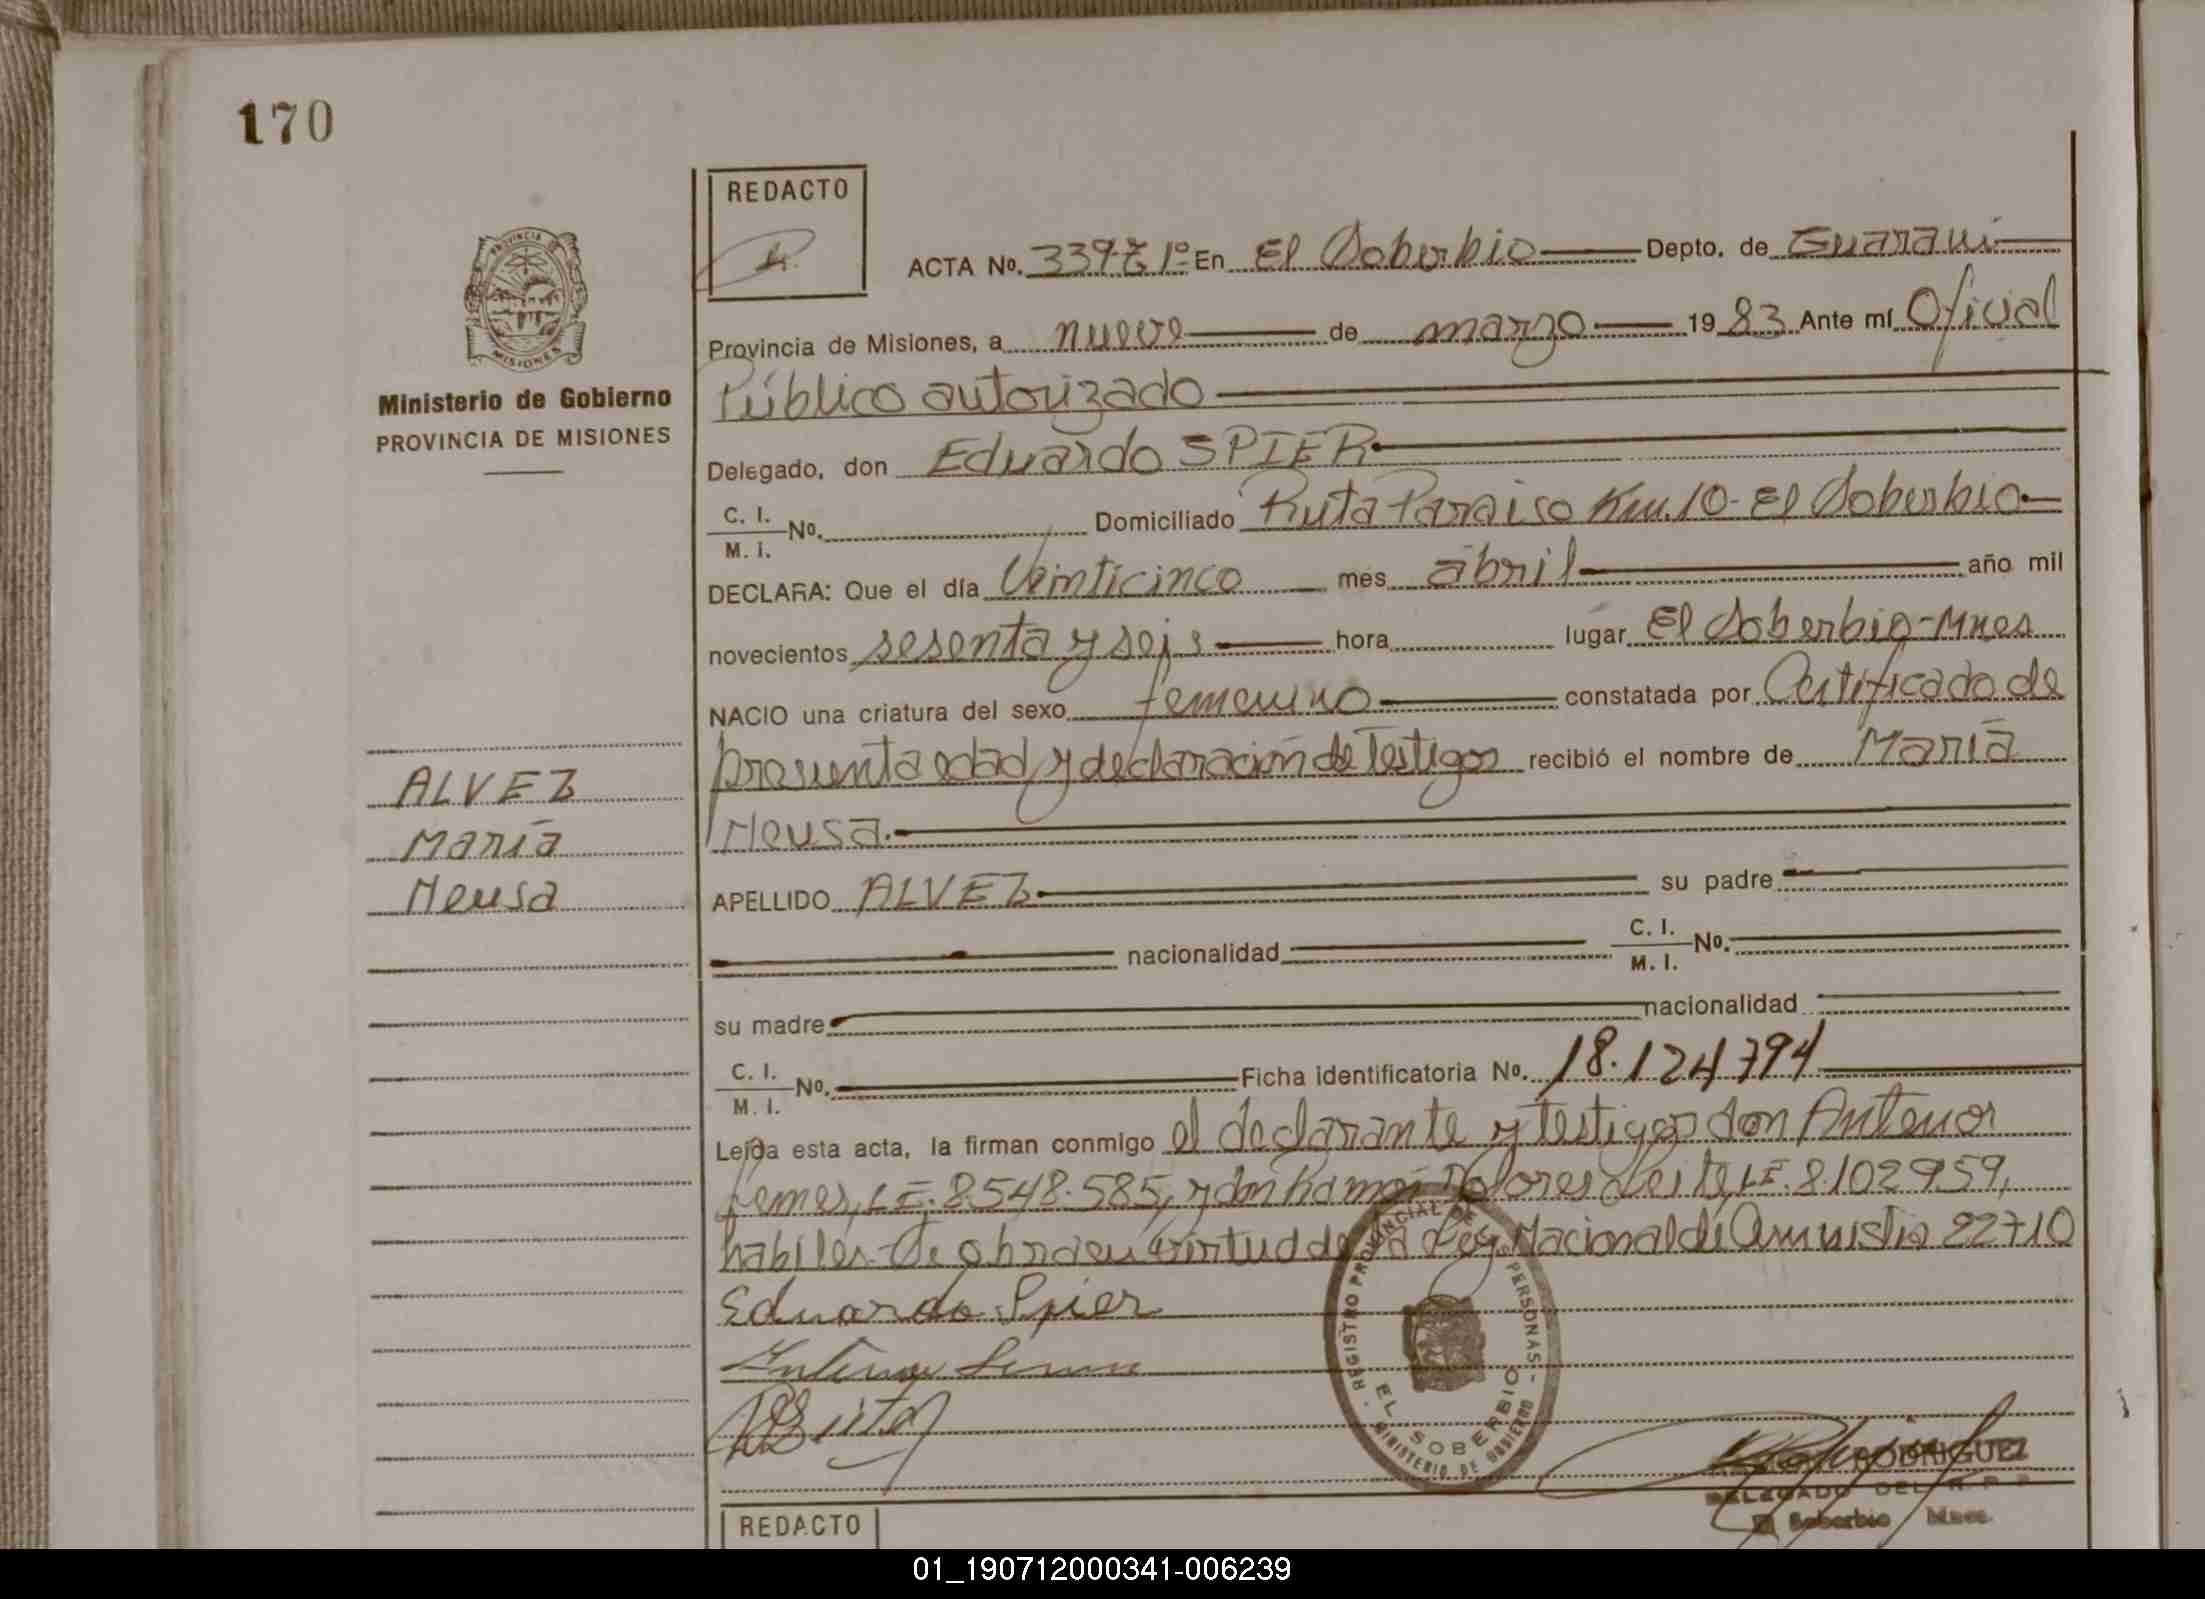 170
REDACTO
ACTA Nº. 339-T 1º En El Soberbio Depto. de Guaraní
PROVINCIA DE MISIONES
Provincia de Misiones, a nueve de marzo 19 83 Ante mí Oficial
Ministerio de Gobierno
PROVINCIA DE MISIONES
Público autorizado
Delegado, don Eduardo SPIER
C. I.
M. I. Nº. Domiciliado Ruta Paraiso Km. 10 - El Soberbio
DECLARA: Que el día Veinticinco mes abril año mil
novecientos sesenta y seis hora lugar El Soberbio - Mnes
NACIO una criatura del sexo femenino constatada por Certificado de
presunta edad y declaración de Testigos recibió el nombre de María
Neusa.
ALVEZ
María
Neusa
APELLIDO ALVEZ su padre
nacionalidad C. I.
M. I. Nº.
su madre nacionalidad
C. I.
M. I. Nº. Ficha identificatoria Nº. 18.124794
Leída esta acta, la firman conmigo el declarante y testigos don Antenor
LE. 8.548.585, y don Ramón Dolores Leite, LE. 8.102959,
habiles. Se obra en virtud de la Ley Nacional de Amnistia 22710
Eduardo Spier
REGISTRO PROVINCIAL DE LAS PERSONAS
EL SOBERBIO
MINISTERIO DE GOBIERNO
RODRIGUEZ
DELEGADO DEL R. P. P.
El Soberbio Mnes.
REDACTO
01_190712000341-006239